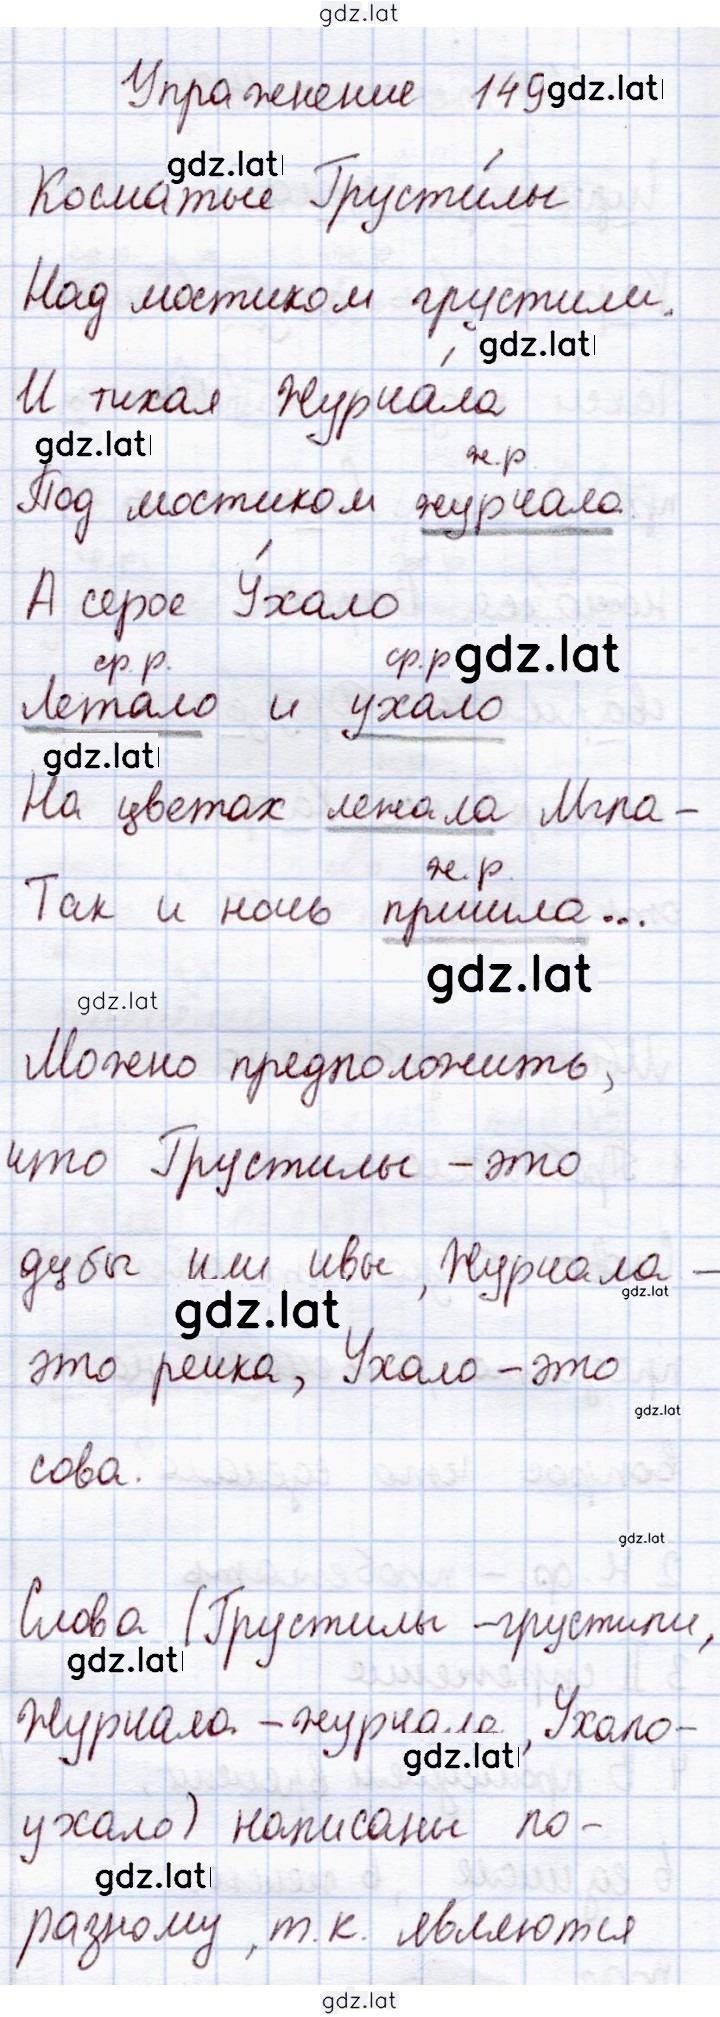 gdz.lat
Упражнение 149 gdz.lat
gdz.lat
Косматые Грусти́лы
Над мостиком грустили.
gdz.lat
И тихая Журча́ла
gdz.lat
ж.р.
Под мостиком журчала.
А серое У́хало
ср.р. ср.р gdz.lat
Летало и ухало
gdz.lat
На цветах лежала Мгла –
ж.р.
Так и ночь пришла...
gdz.lat
gdz.lat
Можно предположить,
что Грустилы – это
дубы или ивы, Журчала –
gdz.lat
gdz.lat
это речка, Ухало – это
gdz.lat
сова.
gdz.lat
Слова (Грустилы – грустили,
gdz.lat
Журчала – журчала, Ухало –
gdz.lat
ухало) написаны по-
gdz.lat
разному, т.к. являются
gdz.lat